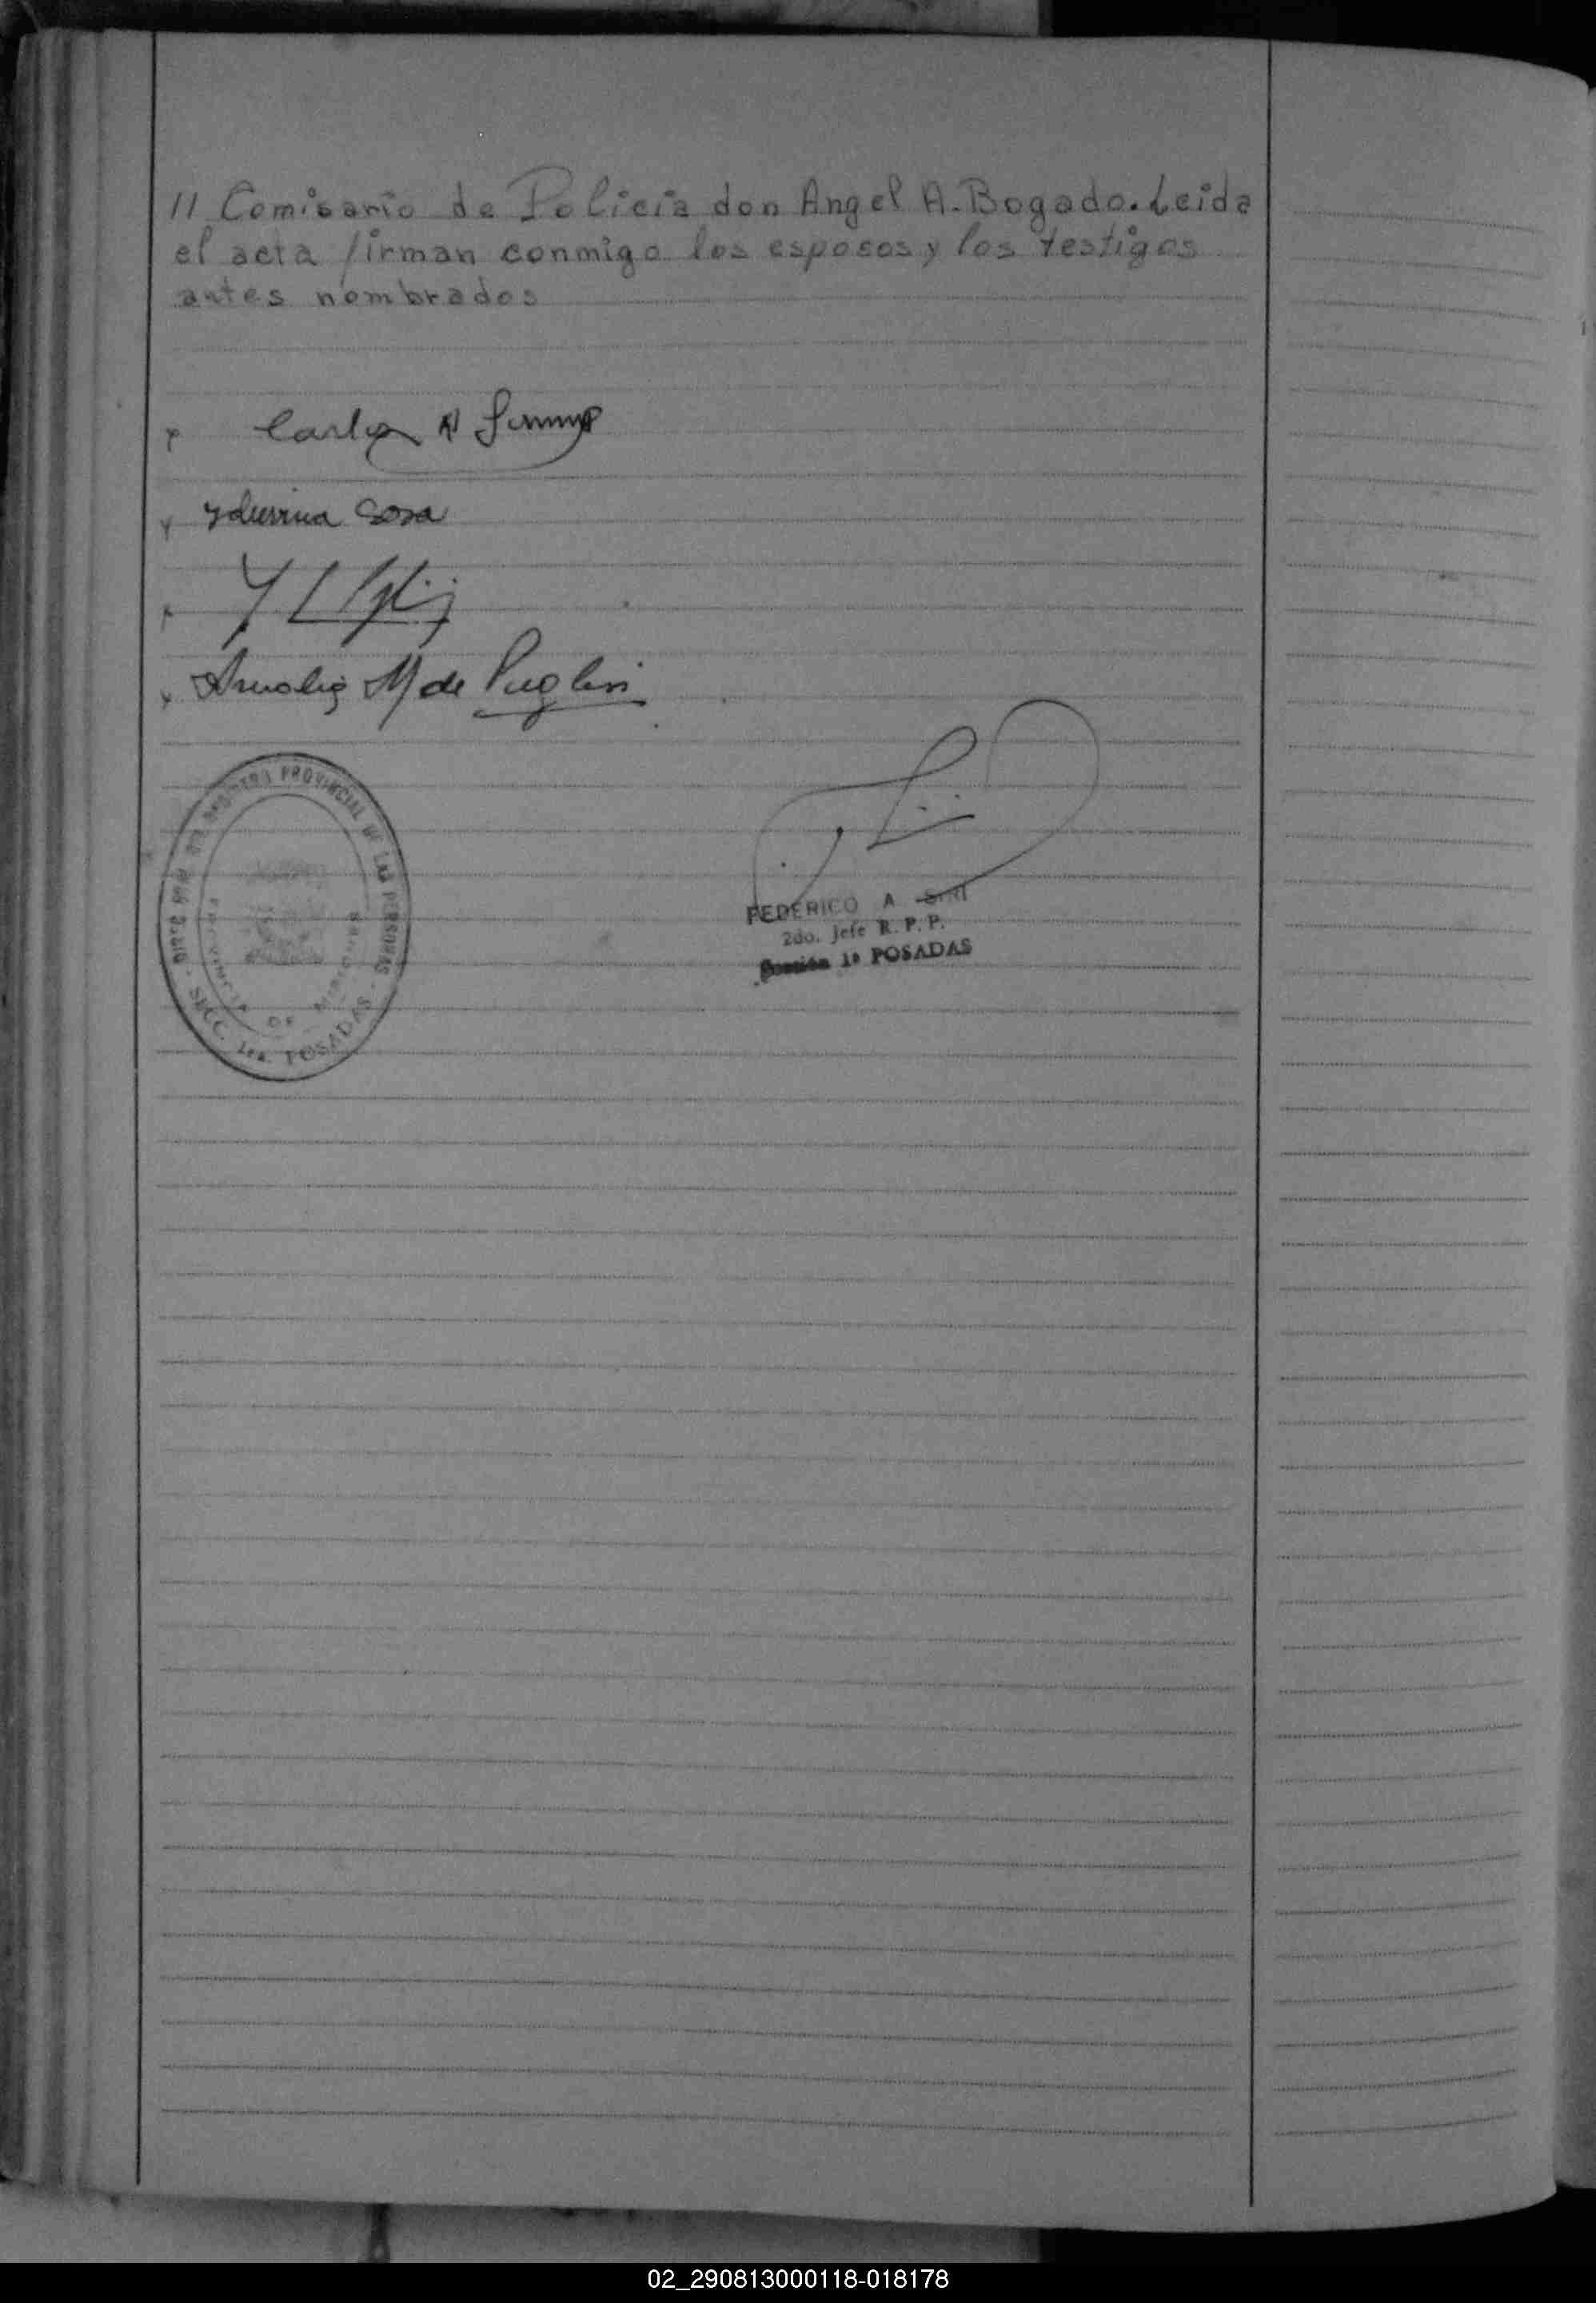 11 Comisario de Policia don Angel A. Bogado. Leida
el acta firman conmigo los esposos y los testigos
antes nombrados
Carlos A
Sosa
Amalia M de Puglisi
PROVINCIAL DE LAS PERSONAS
PROVINCIA DE MISIONES
SECC. 1ra. POSADAS
FEDERICO A
2do. Jefe R. P. P.
Sección 1ª POSADAS
02_290813000118-018178